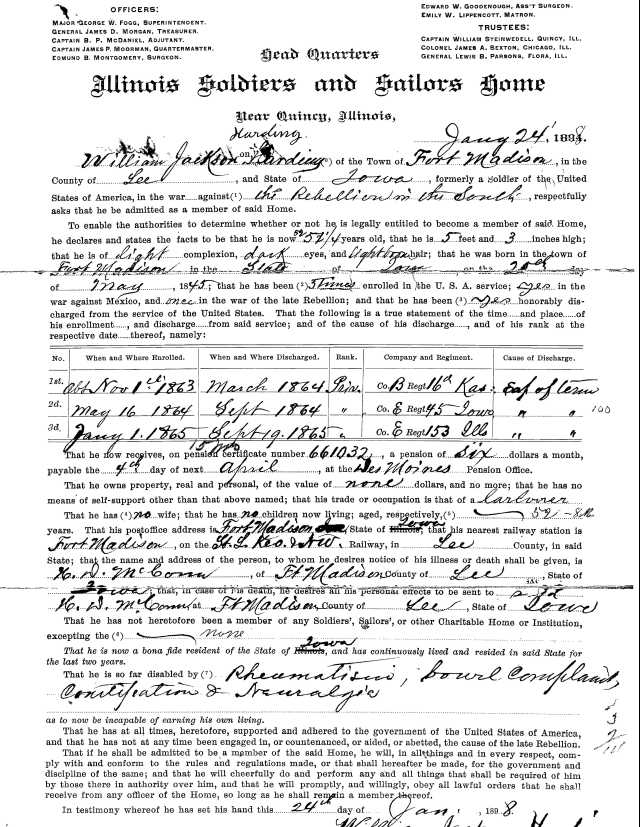 OFFICERS:
MAJOR GEORGE W. FOGG, SUPERINTENDENT.
GENERAL JAMES D. MORGAN, TREASURER.
CAPTAIN B. P. McDANIEL, ADJUTANT.
CAPTAIN JAMES P. MOORMAN, QUARTERMASTER.
EDMUND B. MONTGOMERY, SURGEON.
EDWARD W. GOODENOUGH, ASS'T SURGEON.
EMILY W. LIPPENCOTT, MATRON.
TRUSTEES:
CAPTAIN WILLIAM STEINWEDELL, QUINCY, ILL.
COLONEL JAMES A. SEXTON, CHICAGO, ILL.
GENERAL LEWIS B. PARSONS, FLORA, ILL.
Head Quarters
Illinois Soldiers and Sailors Home
Near Quincy, Illinois,
Harding
Jany 24' 1898.
William Jackson Harding of the Town of Fort Madison, in the
County of Lee, and State of Iowa, formerly a Soldier of the United
States of America, in the war against(¹) the Rebellion in the South, respectfully
asks that he be admitted as a member of said Home.
To enable the authorities to determine whether or not he is legally entitled to become a member of said Home,
he declares and states the facts to be that he is now 52 years old, that he is 5 feet and 3 inches high;
that he is of light complexion, dark eyes, and hair; that he was born in the town of
Fort Madison in the State of Iowa, on the 20th day
of May, 1845; that he has been (²) 3 times enrolled in the U. S. A. service; yes in the
war against Mexico, and once in the war of the late Rebellion; and that he has been (³) yes honorably dis-
charged from the service of the United States. That the following is a true statement of the time and place of
his enrollment, and discharge from said service; and of the cause of his discharge, and of his rank at the
respective date thereof, namely:
No. When and Where Enrolled. When and Where Discharged. Rank. Company and Regiment. Cause of Discharge.
1st. Abt Nov 1st 1863 March 1864 Priv. Co. B Regt 16th Kas. Exp of term
2d. May 16 1864 Sept 1864 " Co. E Regt 45 Iowa " " 100
3d. Jany 1. 1865 Sept 19. 1865 " Co. E Regt 153 Ills " "
That he now receives, on pension certificate number 661032, a pension of six dollars a month,
payable the 4th day of next April, at the Des Moines Pension Office.
That he owns property, real and personal, of the value of none dollars, and no more; that he has no
means of self-support other than that above named; that his trade or occupation is that of a Laborer
That he has (⁴) no wife; that he has no children now living; aged, respectively,(⁵)
years. That his postoffice address is Fort Madison State of Illinois, Iowa; that his nearest railway station is
Fort Madison, on the St. L. Keo. & N.W. Railway, in Lee County, in said
State; that the name and address of the person, to whom he desires notice of his illness or death shall be given, is
H. D. McConn, of Ft Madison County of Lee, State of
Iowa; that, in case of his death, he desires all his personal effects to be sent to
H. D. McConn, at Ft Madison County of Lee, State of Iowa
That he has not heretofore been a member of any Soldiers', Sailors', or other Charitable Home or Institution,
excepting the (⁶) none
That he is now a bona fide resident of the State of Illinois, Iowa and has continuously lived and resided in said State for
the last two years.
That he is so far disabled by (⁷) Rheumatism, Bowel Complaint,
Constipation & Neuralgia
as to now be incapable of earning his own living.
That he has at all times, heretofore, supported and adhered to the government of the United States of America,
and that he has not at any time been engaged in, or countenanced, or aided, or abetted, the cause of the late Rebellion.
That if he shall be admitted to be a member of the said Home, he will, in all things and in every respect, com-
ply with and conform to the rules and regulations made, or that shall hereafter be made, for the government and
discipline of the same; and that he will cheerfully do and perform any and all things that shall be required of him
by those there in authority over him, and that he will promptly, and willingly, obey all lawful orders that he shall
receive from any officer of the Home, so long as he shall remain a member thereof.
In testimony whereof he has set his hand this 24th day of Jan, 1898.